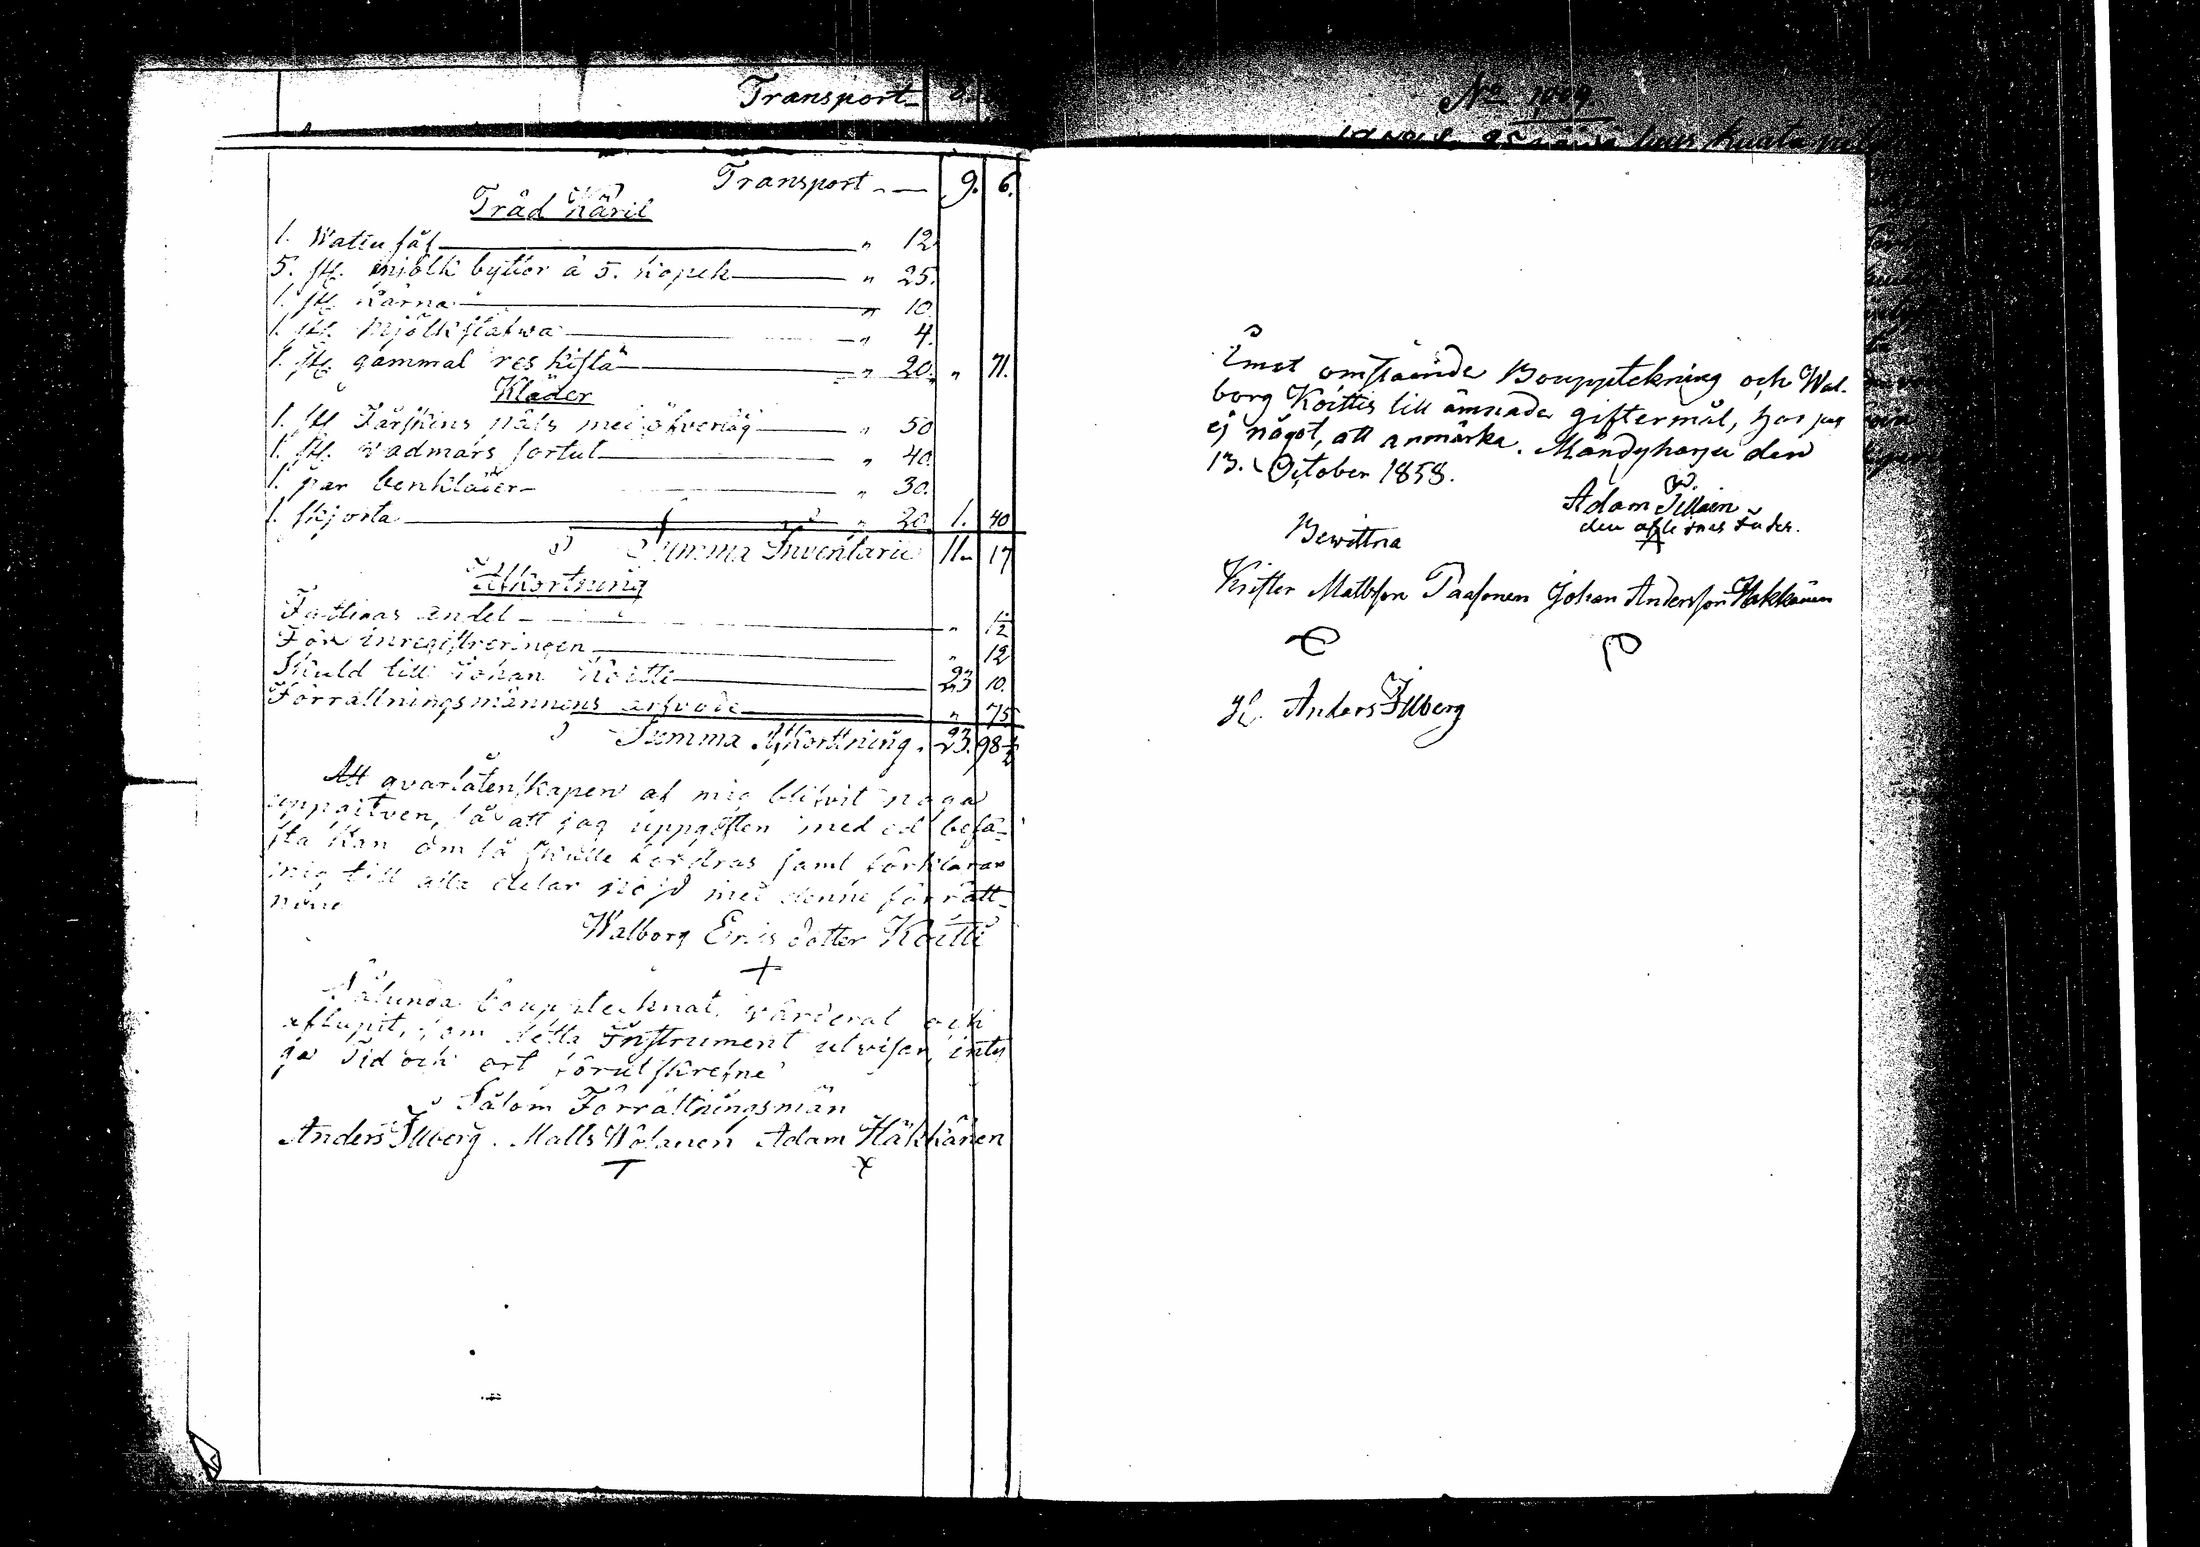 Transport
Transport - — 9. 6.
Träd Käril
1. Wattu såf — " 12
5. st. mjölk byttor a 5. kopek — " 25.
1. st. Kärna — " 10
1. st. Mjölkstäfwa — " 4.
1. st. gammal res kista — " 20. " 71.
Kläder
1. st. Fårskins päls med öfverlåg — " 50
1. st. vadmars sortut — " 40
1. par benkläder — " 30.
1. skjorta — " 20 1. 40
Summa Inventarie 11 17
Afkortning
Fattigas andel — " 1½
För inregistreringen — " 12
Skuld till Johan Koitti — 23 10.
Förrättningsmännens arfvode — " 75
Summa Afkortning. 23. 98½
Att qvarlåtenskapen af mig blifvit noga
uppgifven, så att jag uppgiften med ed befä-
sta kan om så skulle fordras samt förklarar
mig till alla delar nöjd med denne förrätt-
Walborg Eriks dotter Koitti
+
Sålunda boupptecknat, värderat och
aflupit, som detta Instrument utvisar, inty
ga Tid och ort förutskrefne
Såsom Förrättningsmän
Anders Illberg. Matts Adam Häkkänen
No 1009.
Emot omstående Bouppteckning och Wal-
borg Koittis till ämnade giftermål, har jag
ej något, att anmärka. Mändyharju den
13. October 1858.
Adam
den aflednes Fader.
Bewittna
Krister Mattsson Paasonen Johan Andersson Hakkänen
Anders Illberg